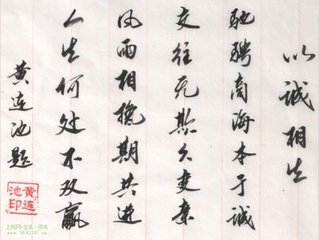 以诚相生
驰骋商海本于诚
交往无欺久更亲
风雨相携期共进
人生何处不双赢
黄连池题
黄连
池印